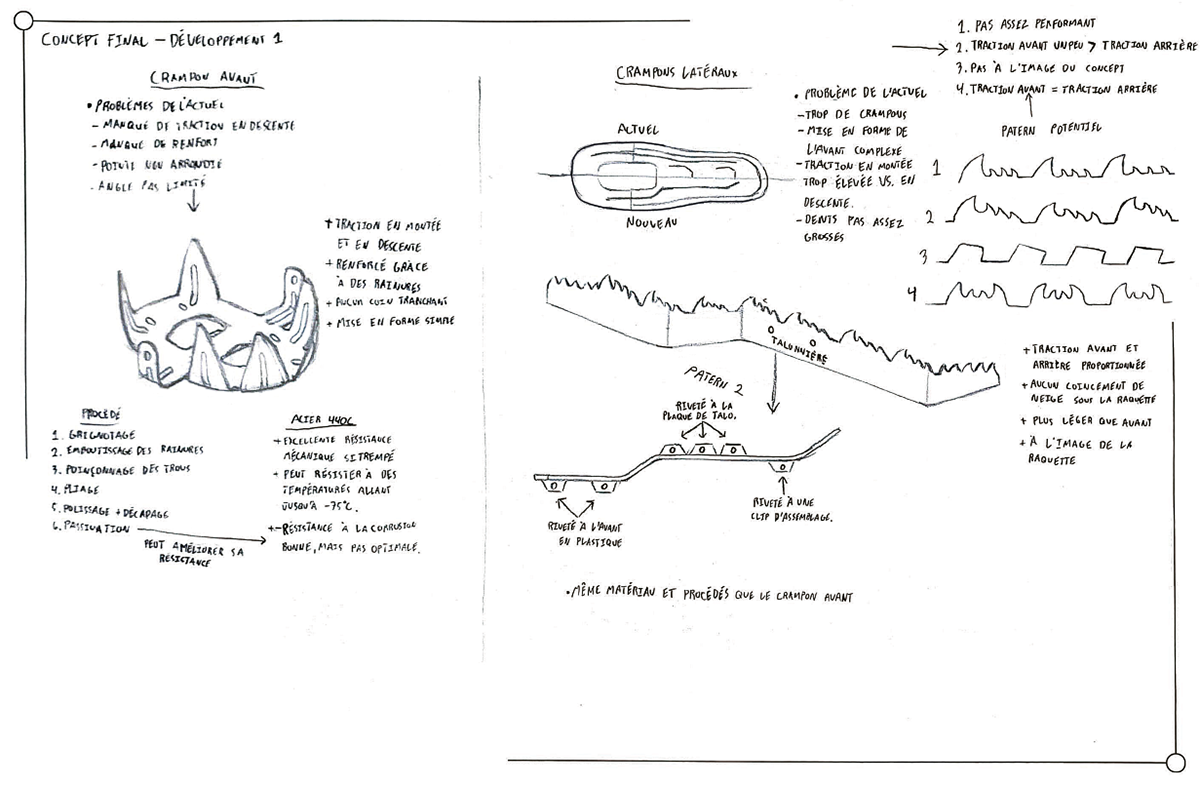 CONCEPT FINAL — DÉVELOPPEMENT 1
CRAMPON AVANT
• PROBLÈMES DE L'ACTUEL
- MANQUE DE TRACTION EN DESCENTE
- MANQUE DE RENFORT
- POINTE NON ARRONDIE
- ANGLE PAS LIMITÉ
+ TRACTION EN MONTÉE
ET EN DESCENTE
+ RENFORCÉ GRÂCE
À DES RAINURES
+ AUCUN COIN TRANCHANT
+ MISE EN FORME SIMPLE
PROCÉDÉ
1. GRIGNOTAGE
2. EMBOUTISSAGE DES RAINURES
3. POINÇONNAGE DES TROUS
4. PLIAGE
5. POLISSAGE + DÉCAPAGE
6. PASSIVATION
PEUT AMÉLIORER SA
RÉSISTANCE
ACIER 440C
+ EXCELLENTE RÉSISTANCE
MÉCANIQUE SI TREMPÉ
+ PEUT RÉSISTER À DES
TEMPÉRATURES ALLANT
JUSQU'À -75°C.
+- RÉSISTANCE À LA CORROSION
BONNE, MAIS PAS OPTIMALE.
CRAMPONS LATÉRAUX
ACTUEL
NOUVEAU
• PROBLÈME DE L'ACTUEL
- TROP DE CRAMPONS
- MISE EN FORME DE
L'AVANT COMPLEXE
- TRACTION EN MONTÉE
TROP ÉLEVÉE VS. EN
DESCENTE.
- DENTS PAS ASSEZ
GROSSES
1. PAS ASSEZ PERFORMANT
2. TRACTION AVANT UN PEU > TRACTION ARRIÈRE
3. PAS À L'IMAGE DU CONCEPT
4. TRACTION AVANT = TRACTION ARRIÈRE
PATERN POTENTIEL
1
2
3
4
TALONNIÈRE
PATERN 2
RIVETÉ À LA
PLAQUE DE TALO.
RIVETÉ À L'AVANT
EN PLASTIQUE
RIVETÉ À UNE
CLIP D'ASSEMBLAGE.
+ TRACTION AVANT ET
ARRIÈRE PROPORTIONNÉE
+ AUCUN COINCEMENT DE
NEIGE SOUS LA RAQUETTE
+ PLUS LÉGER QUE AVANT
+ À L'IMAGE DE LA
RAQUETTE
• MÊME MATÉRIAU ET PROCÉDÉS QUE LE CRAMPON AVANT